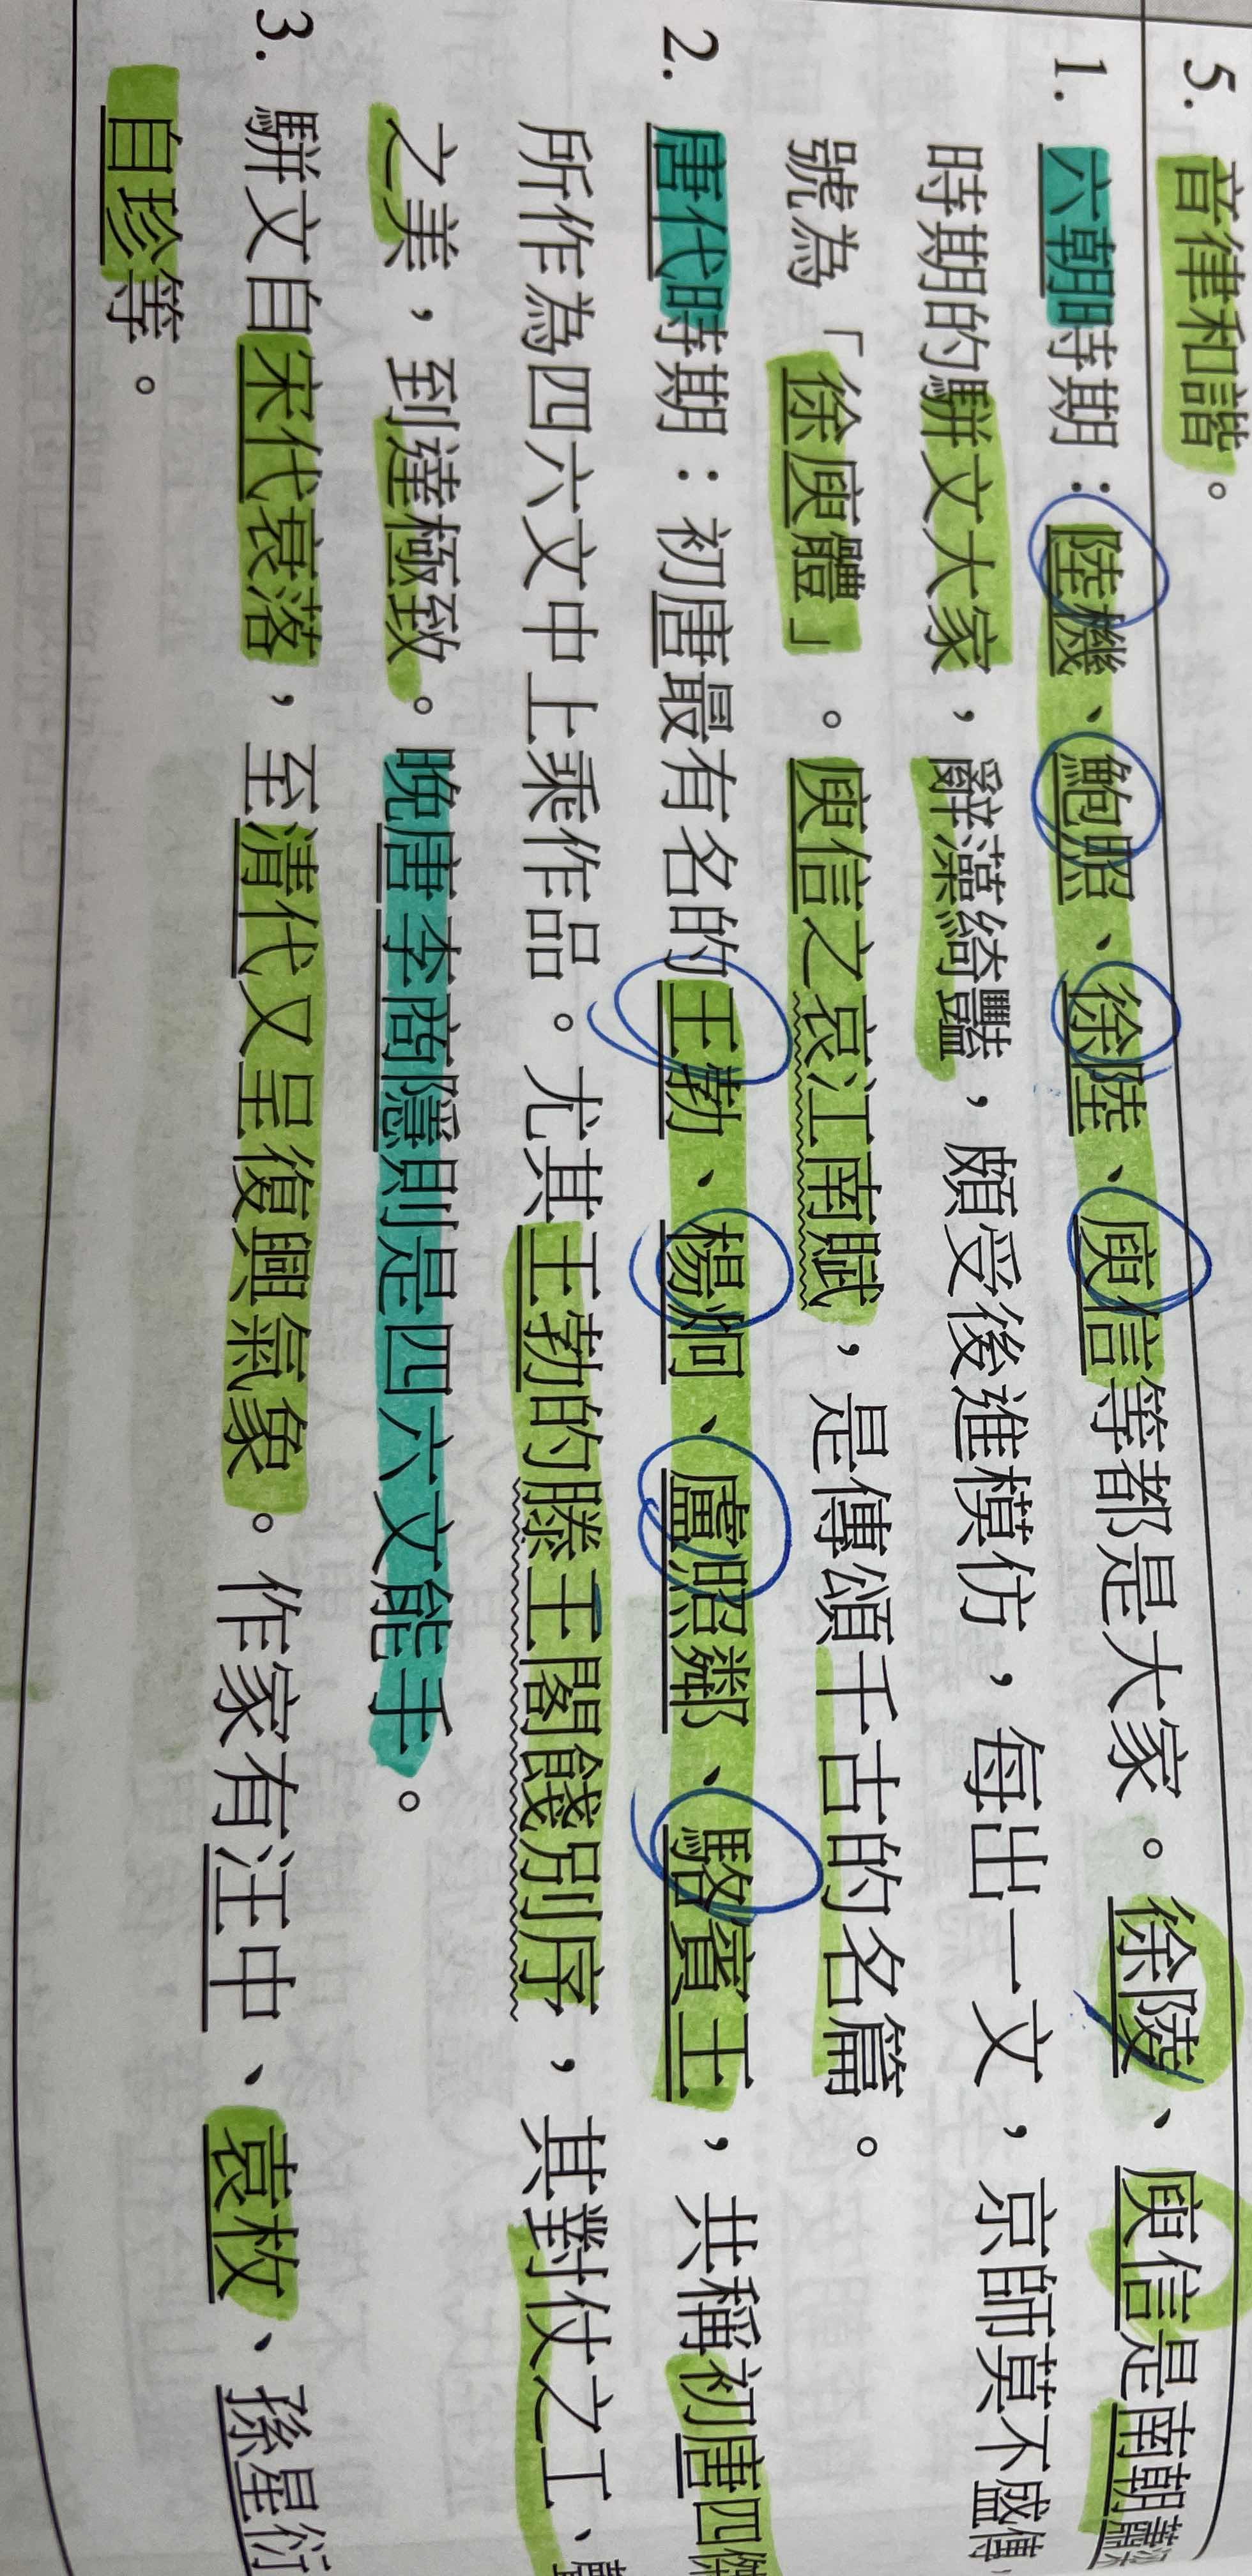 5. 音律和諧。
1. 六朝時期：陸機、鮑照、徐陵、庾信等都是大家。徐陵、庾信是南朝蕭梁
時期的駢文大家，辭藻綺豔，頗受後進模仿，每出一文，京師莫不盛傳，
號為「徐庾體」。庾信之哀江南賦，是傳頌千古的名篇。
2. 唐代時期：初唐最有名的王勃、楊炯、盧照鄰、駱賓王，共稱初唐四傑
所作為四六文中上乘作品。尤其王勃的滕王閣餞別序，其對仗之工、
之美，到達極致。晚唐李商隱則是四六文能手。
3. 駢文自宋代衰落，至清代又呈復興氣象。作家有汪中、袁枚、孫星衍
自珍等。